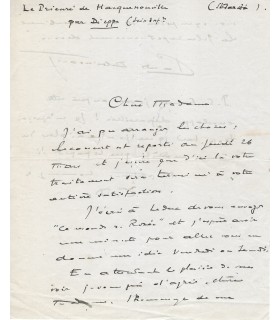 Le Prieuré de Hacquenouville (Mardi).
par Dieppe
Chère Madame
J'ai pu arranger les choses,
reporté au jeudi 26
Mars et j'espère que d'ici là votre
traitement sera terminé à votre
entière satisfaction.
J'écris à Leduc de vous envoyer
"Le monde Rosée" et j'espère avoir
une minute pour aller vous en
donner une idée Vendredi ou Lundi.
En attendant le plaisir de vous
voir je vous prie d'agréer, chère
Madame, l'hommage de mes